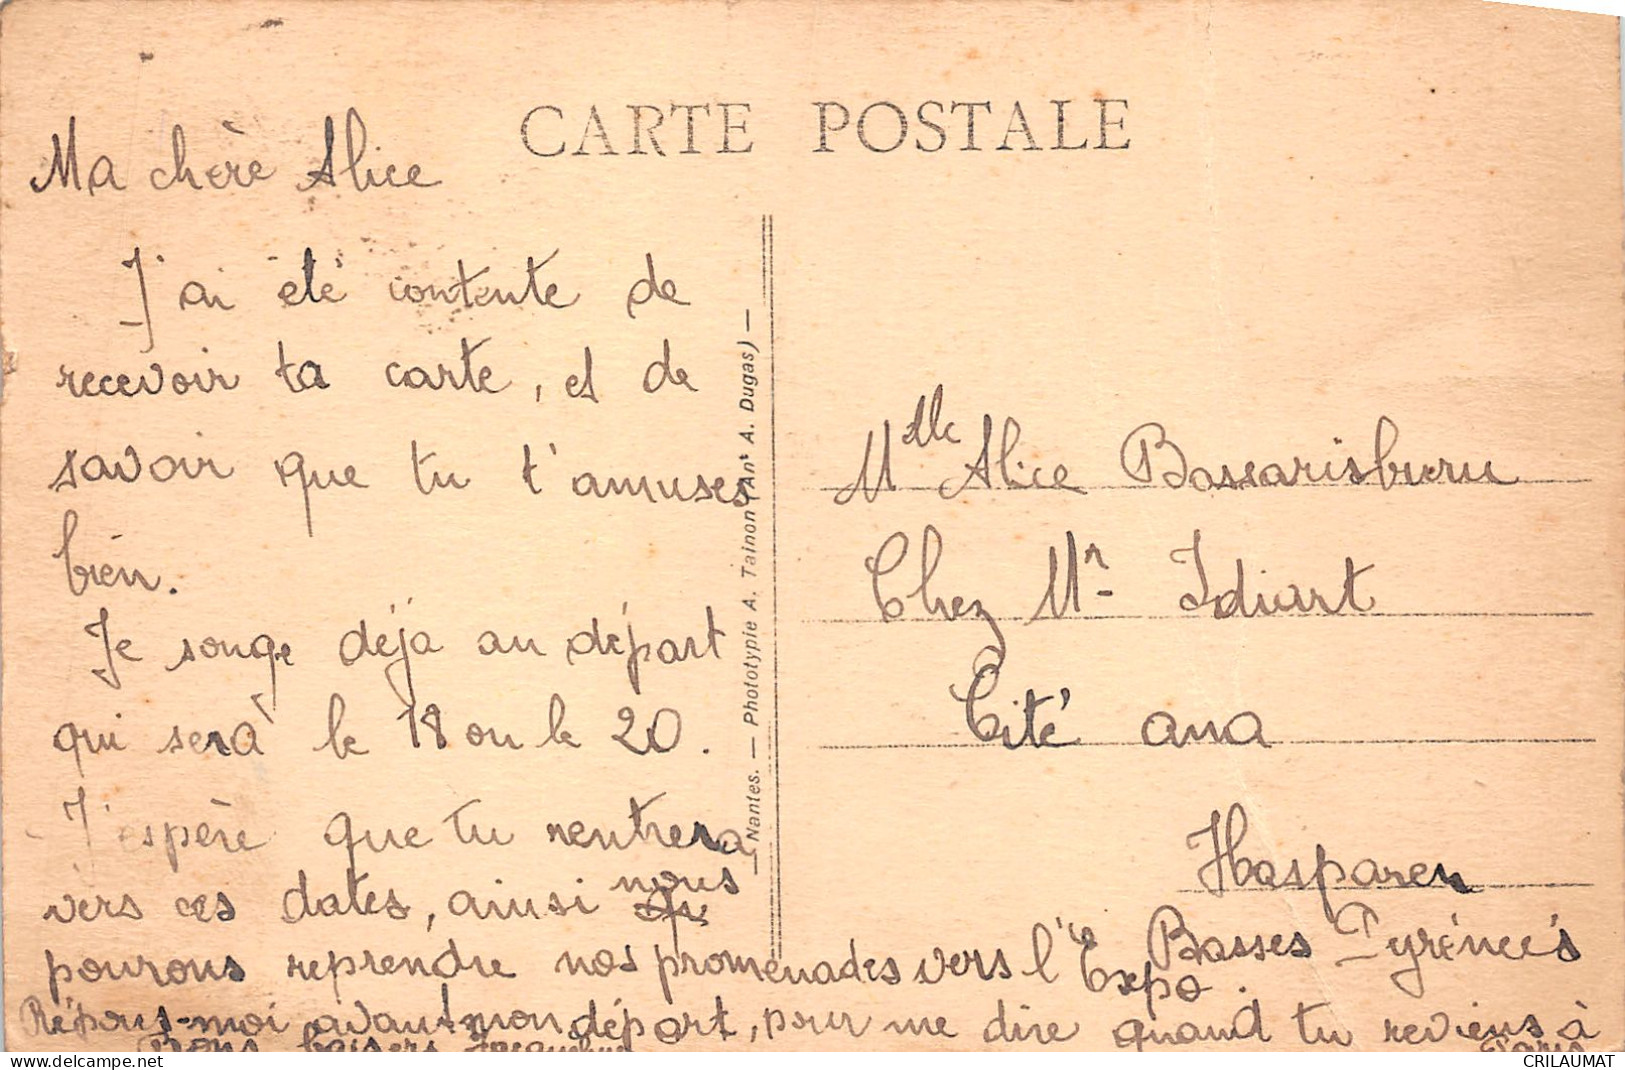 CARTE POSTALE
Ma chère Alice
J'ai été contente de
recevoir ta carte, et de
savoir que tu t'amuses
bien.
Je songe déjà au départ
qui sera le 18 ou le 20.
J'espère que tu rentrera
vers ces dates, ainsi nous
pourons reprendre nos promenades vers l'Expo.
Répons-moi avant mon départ, pour me dire quand tu reviens à
Paris
Bons baisers Jacqueline
— Nantes. — Phototypie A. Tainon (Anᵗ A. Dugas) —
Mlle Alice Bassarisburu
Chez Mr Idiart
Cité ana
Hasparen
Basses Pyrénées
delcampe.net
CRILAUMAT